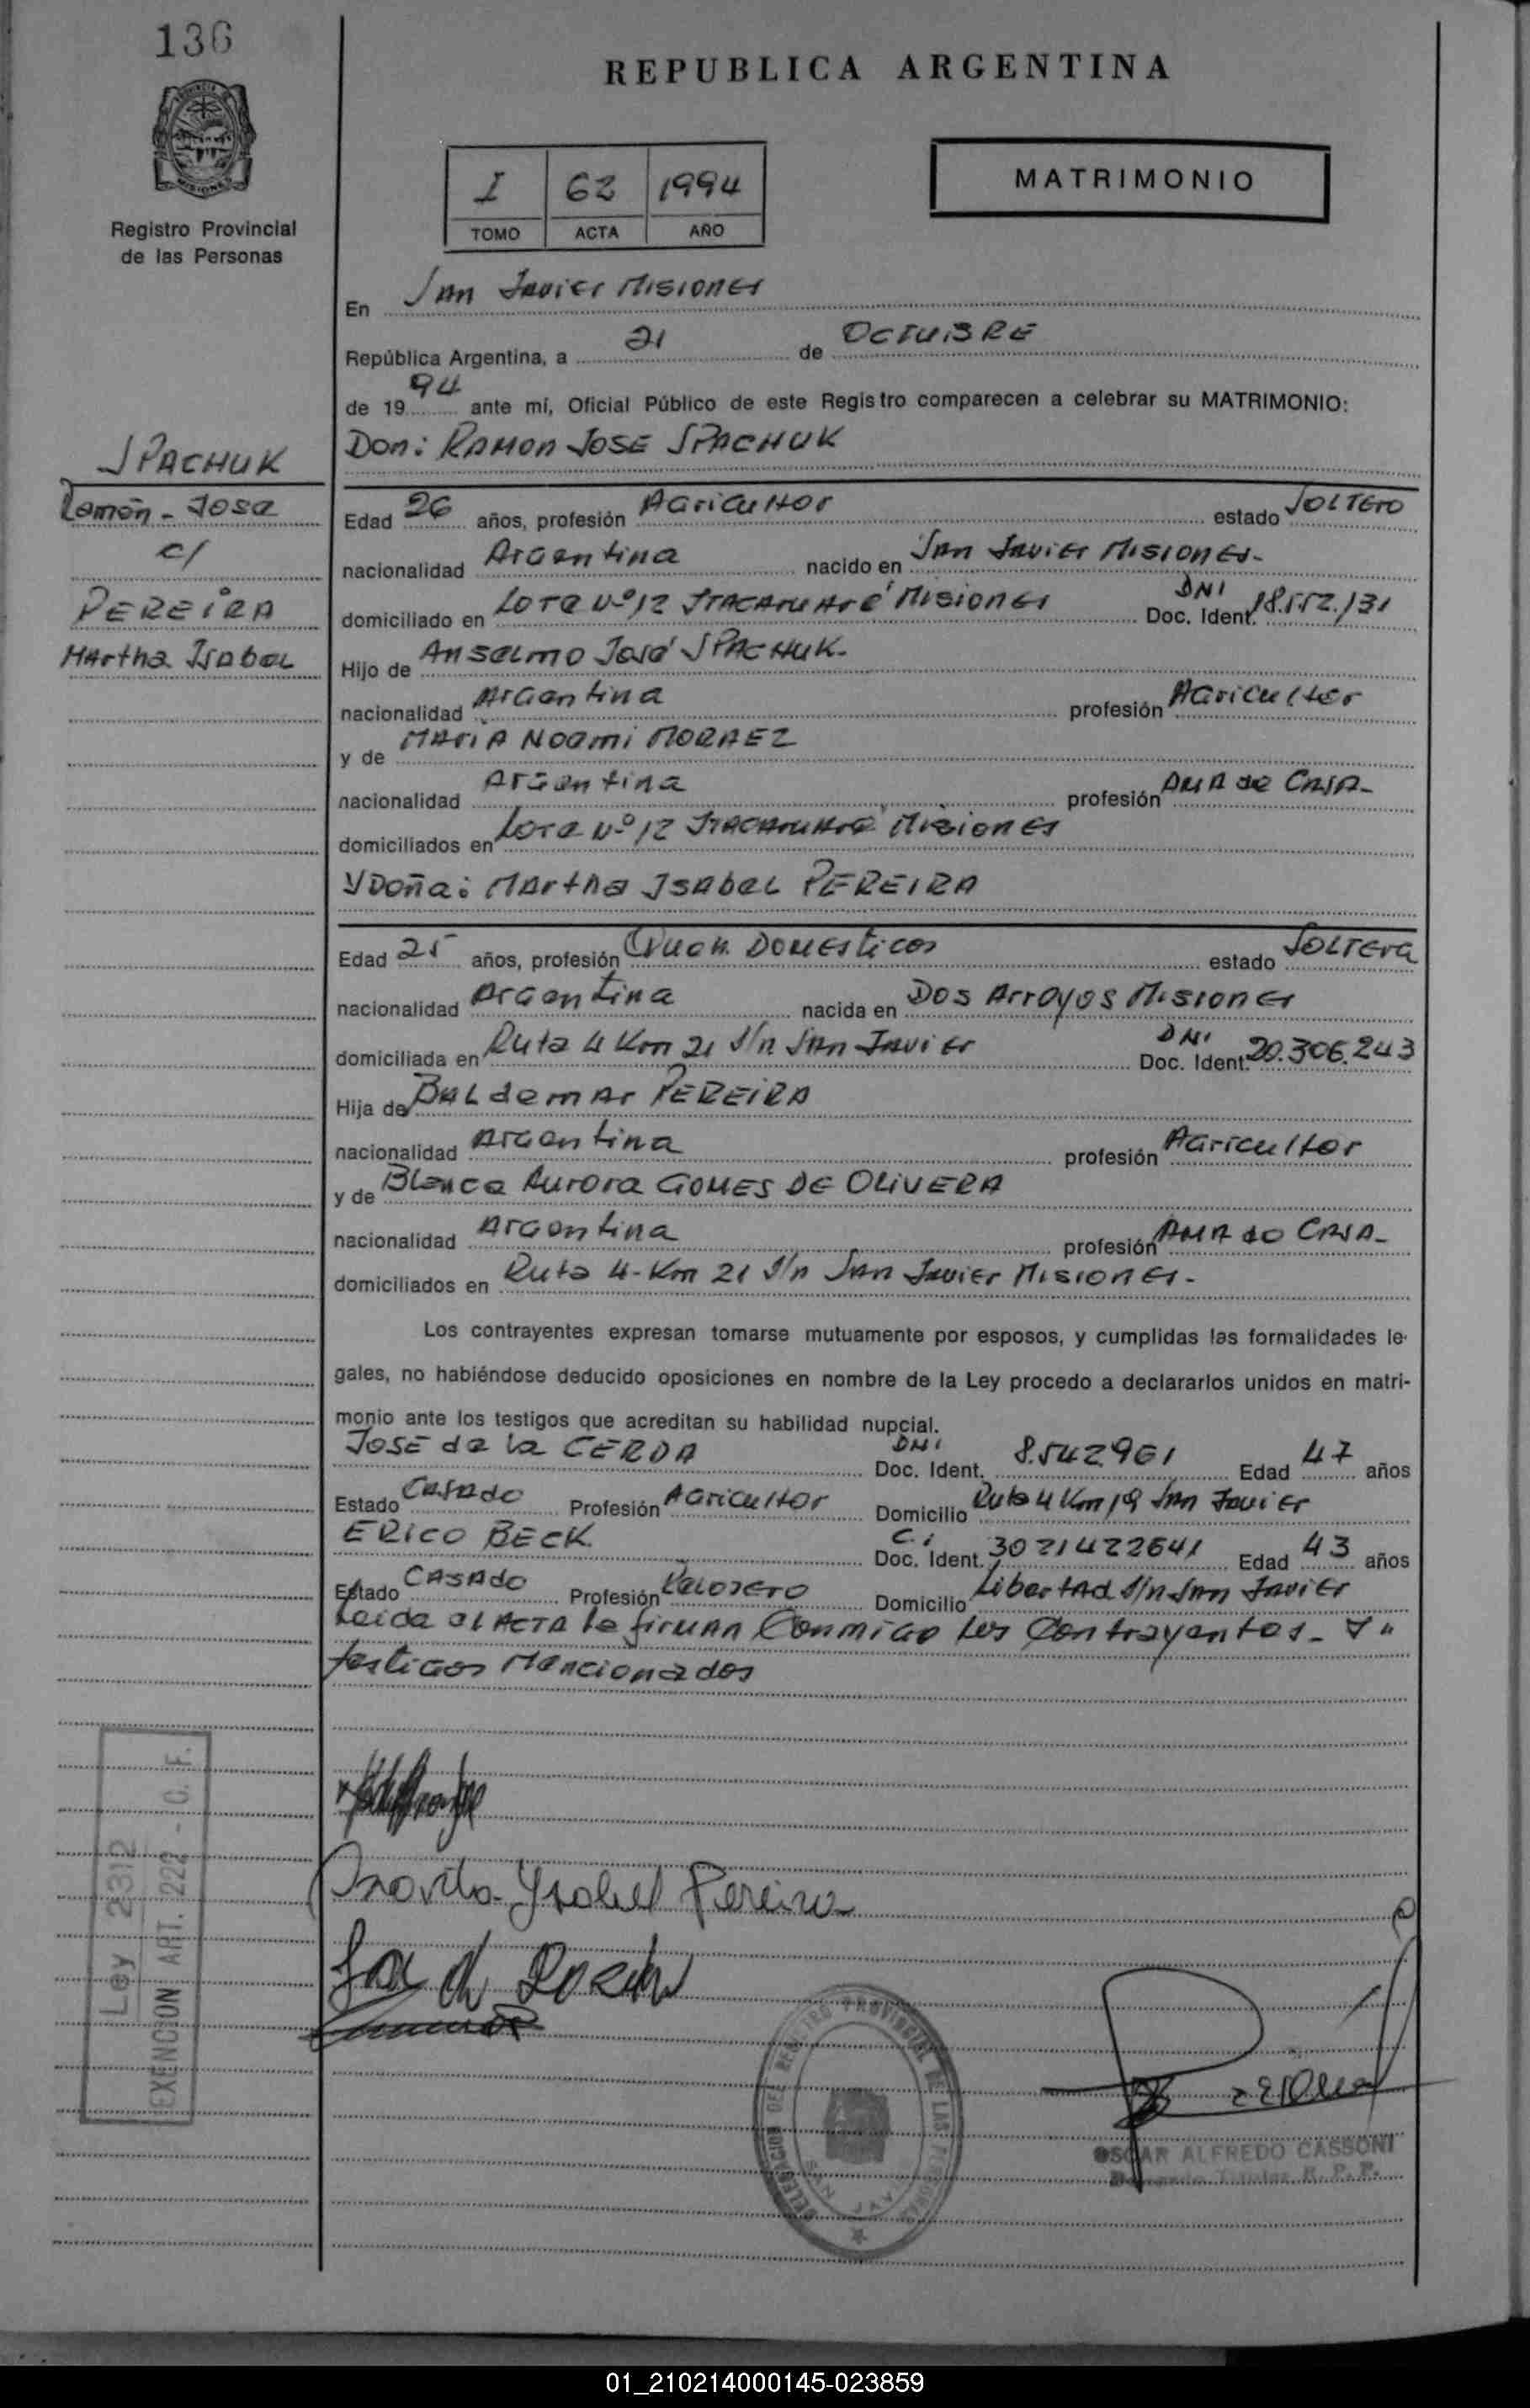 136
REPUBLICA ARGENTINA
MISIONES
Registro Provincial
de las Personas
I 62 1994
TOMO ACTA AÑO
MATRIMONIO
En San Javier Misiones
República Argentina, a 21 de OCTUBRE
de 1994 ante mí, Oficial Público de este Registro comparecen a celebrar su MATRIMONIO:
Don: RAMON JOSE SPACHUK
SPACHUK
Ramón - Jose
c/
PEREIRA
Martha Isabel
Edad 26 años, profesión Agricultor estado SOLTERO
nacionalidad Argentina nacido en San Javier Misiones-
domiciliado en Lote Nº 12 Itacaruaré Misiones DNI Doc. Ident. 18.552.131
Hijo de Anselmo José SPACHUK-
nacionalidad Argentina profesión Agricultor
y de Maria Noemi MORAEZ
nacionalidad Argentina profesión AMA de CASA-
domiciliados en Lote Nº 12 Itacaruaré Misiones
Y Doña: Martha Isabel PEREIRA
Edad 25 años, profesión Domesticos estado SOLTEra
nacionalidad Argentina nacida en Dos Arroyos Misiones
domiciliada en Ruta 4 Km 21 s/n San Javier DNI Doc. Ident. 20.306.243
Hija de Baldemar PEREIRA
nacionalidad Argentina profesión Agricultor
y de Blanca Aurora GOMES DE OLIVERA
nacionalidad Argentina profesión AMA de CASA-
domiciliados en Ruta 4- Km 21 s/n San Javier Misiones-
Los contrayentes expresan tomarse mutuamente por esposos, y cumplidas las formalidades le-
gales, no habiéndose deducido oposiciones en nombre de la Ley procedo a declararlos unidos en matri-
monio ante los testigos que acreditan su habilidad nupcial.
JOSÉ de la CERDA DNI Doc. Ident. 8.542.961 Edad 47 años
Estado Casado Profesión Agricultor Domicilio Ruta 4 Km 19 San Javier
ERICO BECK C.i Doc. Ident. 3021422641 Edad 43 años
Estado CASAdo Profesión Relojero Domicilio Libertad s/n San Javier
Leida el ACTA la firman Conmigo los Contrayentes- Y
testigos Mencionados
Ysabel Pereira
Ley 2312
EXENCION ART. 222 - C. F.
DELEGACION DEL REGISTRO PROVINCIAL DE LAS PERSONAS
SAN JAVIER
OSCAR ALFREDO CASSONI
Titular R. P. P.
01_210214000145-023859